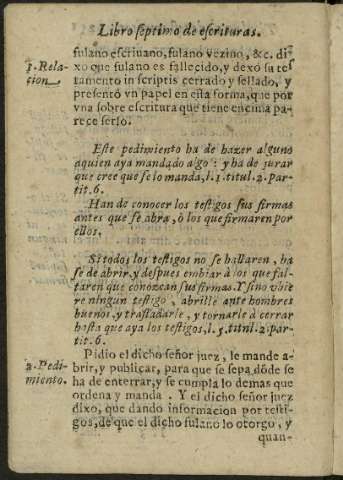 Libro septimo de escrituras.
fulano escriuano, fulano vezino, &c. di-
1. Rela-
cion
xo que fulano es fallecido, y dexó su tes
tamento in scriptis cerrado y sellado, y
presentó vn papel en esta forma, que por
vna sobre escritura que tiene encima pa-
rece serlo.
Este pedimiento ha de hazer alguno
aquien aya mandado algo : y ha de jurar
que cree que se lo manda, l. 1. titul. 2. par-
tit. 6.
Han de conocer los testigos sus firmas
antes que se abra, ò los que firmaren por
ellos.
Si todos los testigos no se hallaren, ha
se de abrir, y despues embiar à los que fal-
taren que conozcan sus firmas. Y sino vbie
re ningun testigo, abrille ante hombres
buenos, y trasladarle, y tornarle à cerrar
hasta que aya los testigos, l. 3. titnl. 2. par-
tit. 6.
2. Pedi-
miento.
Pidio el dicho señor juez, le mande a-
brir, y publicar, para que se sepa dõde se
ha de enterrar, y se cumpla lo demas que
ordena y manda. Y el dicho señor juez
dixo, que dando informacion por testi-
gos, de que el dicho fulano lo otorgo, y
quan-